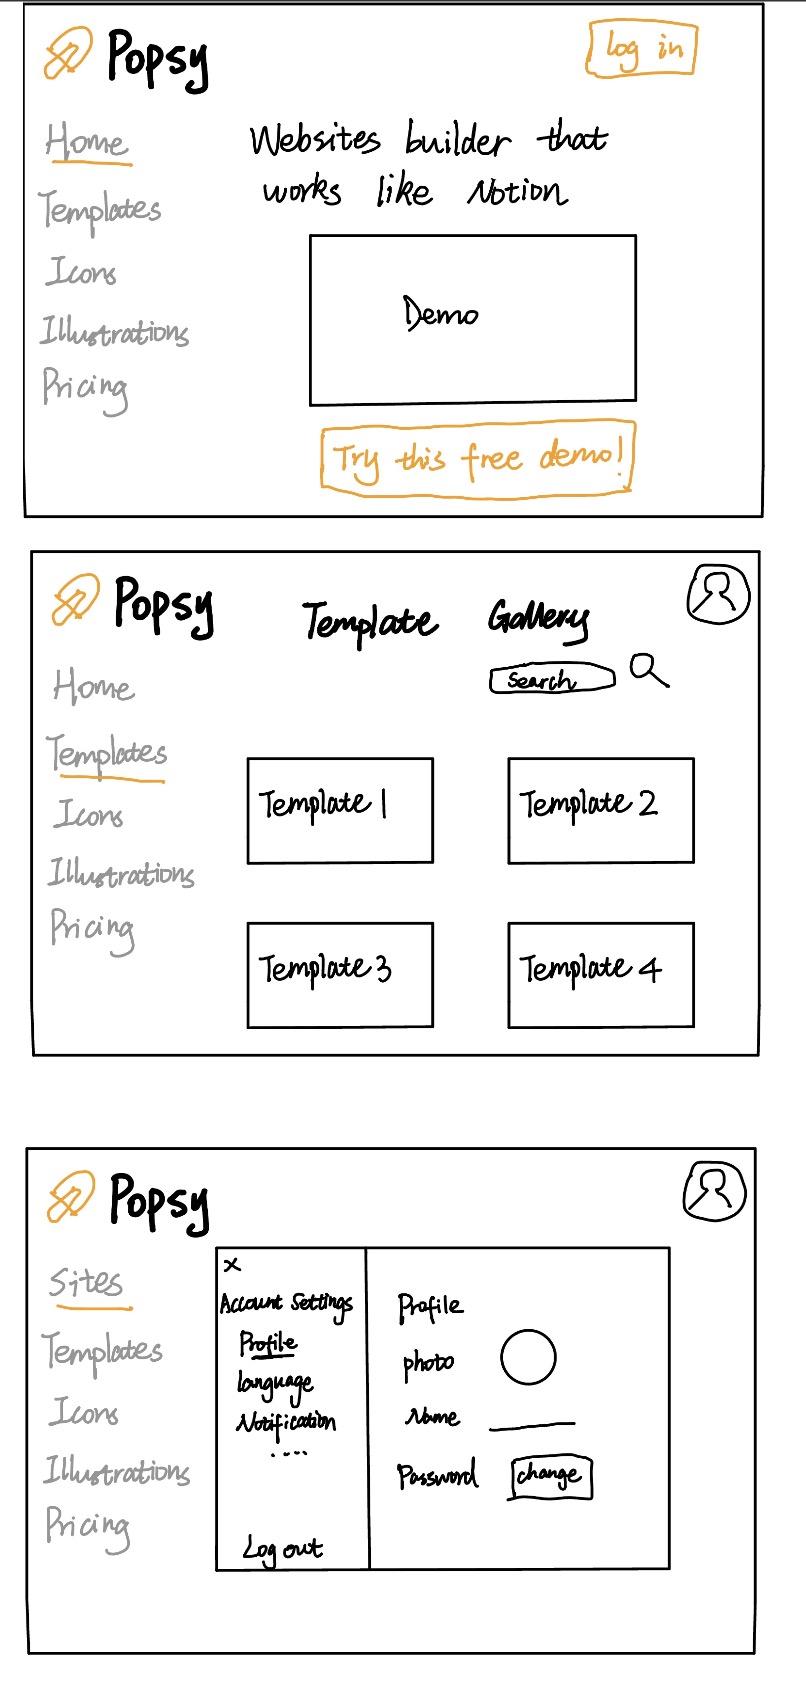 Popsy
log in
Home
Templates
Icons
Illustrations
Pricing
Websites builder that
works like Notion
Demo
Try this free demo!
Popsy
Template Gallery
Search
Home
Templates
Icons
Illustrations
Pricing
Template 1
Template 2
Template 3
Template 4
Popsy
Sites
Templates
Icons
Illustrations
Pricing
x
Account Settings
Profile
language
Notification
....
Log out
Profile
photo
Name
Password
change